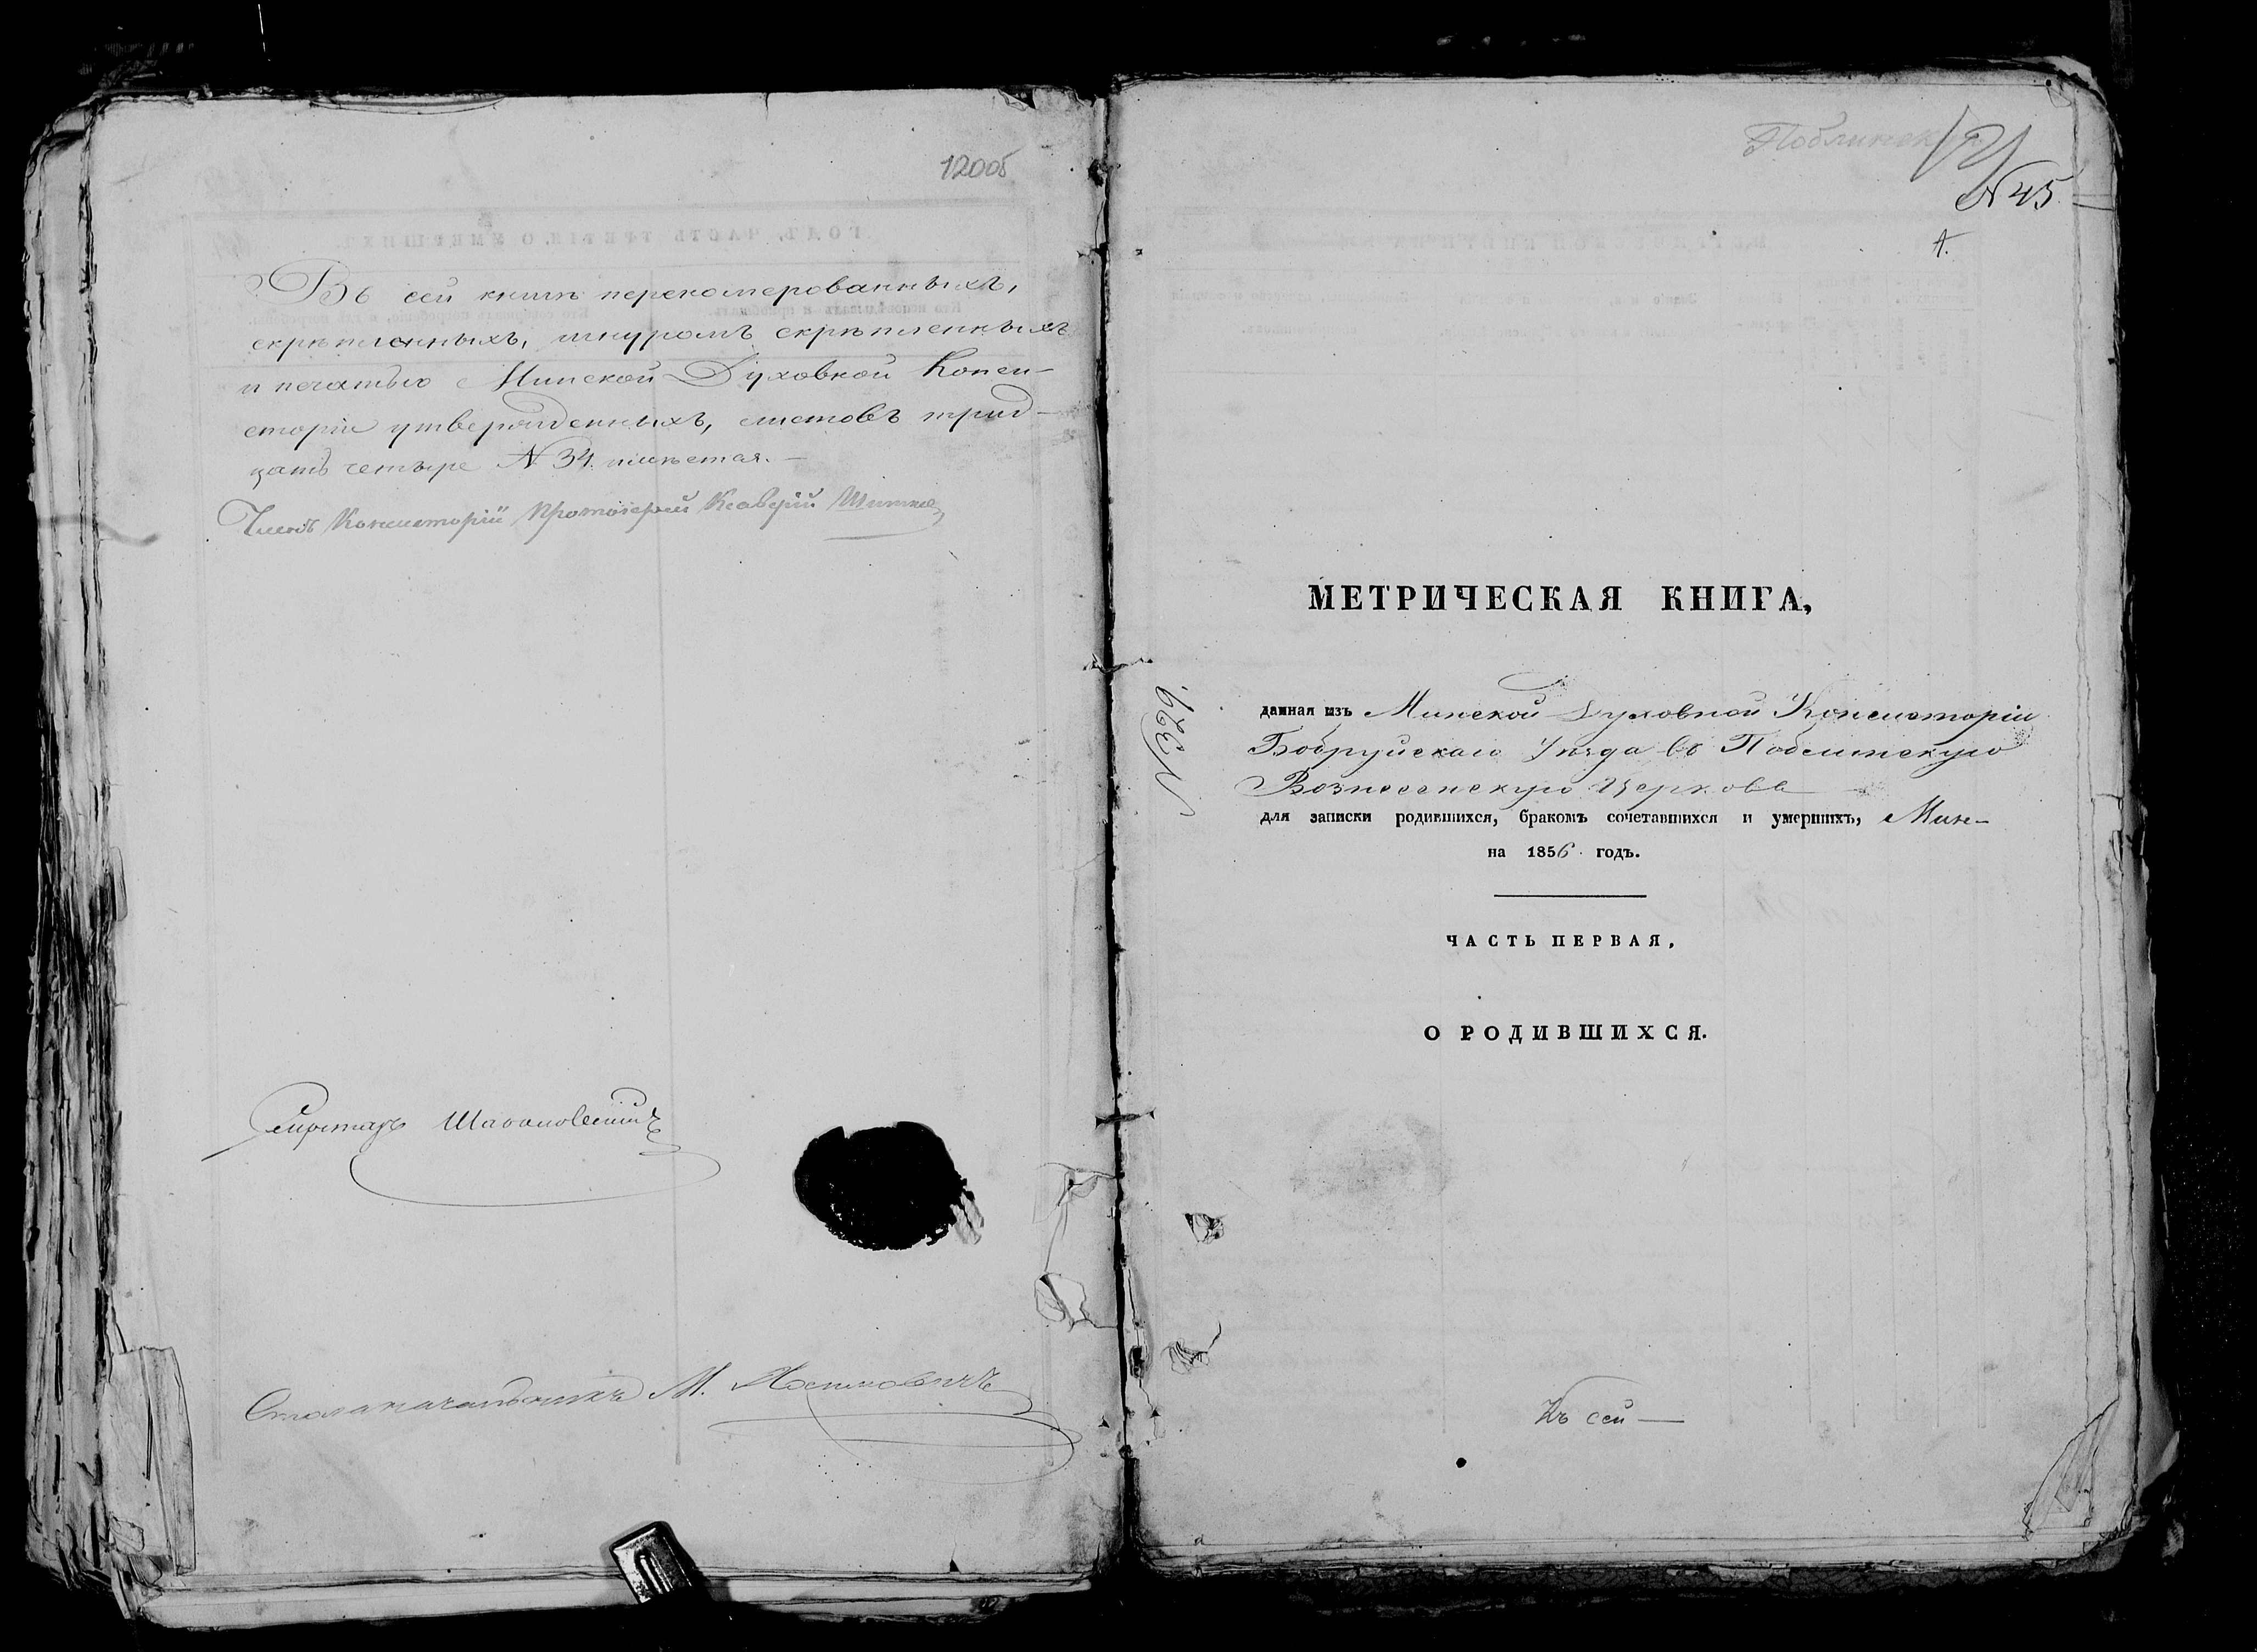 1200б
Въ сей книгѣ перекомерованныхъ,
скрѣпленныхъ, шнуромъ скрѣпленныхъ
и печатью Минской Духовной Конси-
сторіи утвержденныхъ, листовъ трид-
цать четыре № 34. имѣется. —
Членъ Консисторіи Протоіерей Ксаверій
Секретарь
Столоначальникъ М.
№ 45
МЕТРИЧЕСКАЯ КНИГА,
№ 329.
данная изъ Минской Духовной Консисторіи
Бобруйскаго Уѣзда въ
Вознесенскую Церковь
для записки родившихся, бракомъ сочетавшихся и умершихъ, Мин-
на 1856 годъ.
ЧАСТЬ ПЕРВАЯ,
О РОДИВШИХСЯ.
Къ сей —